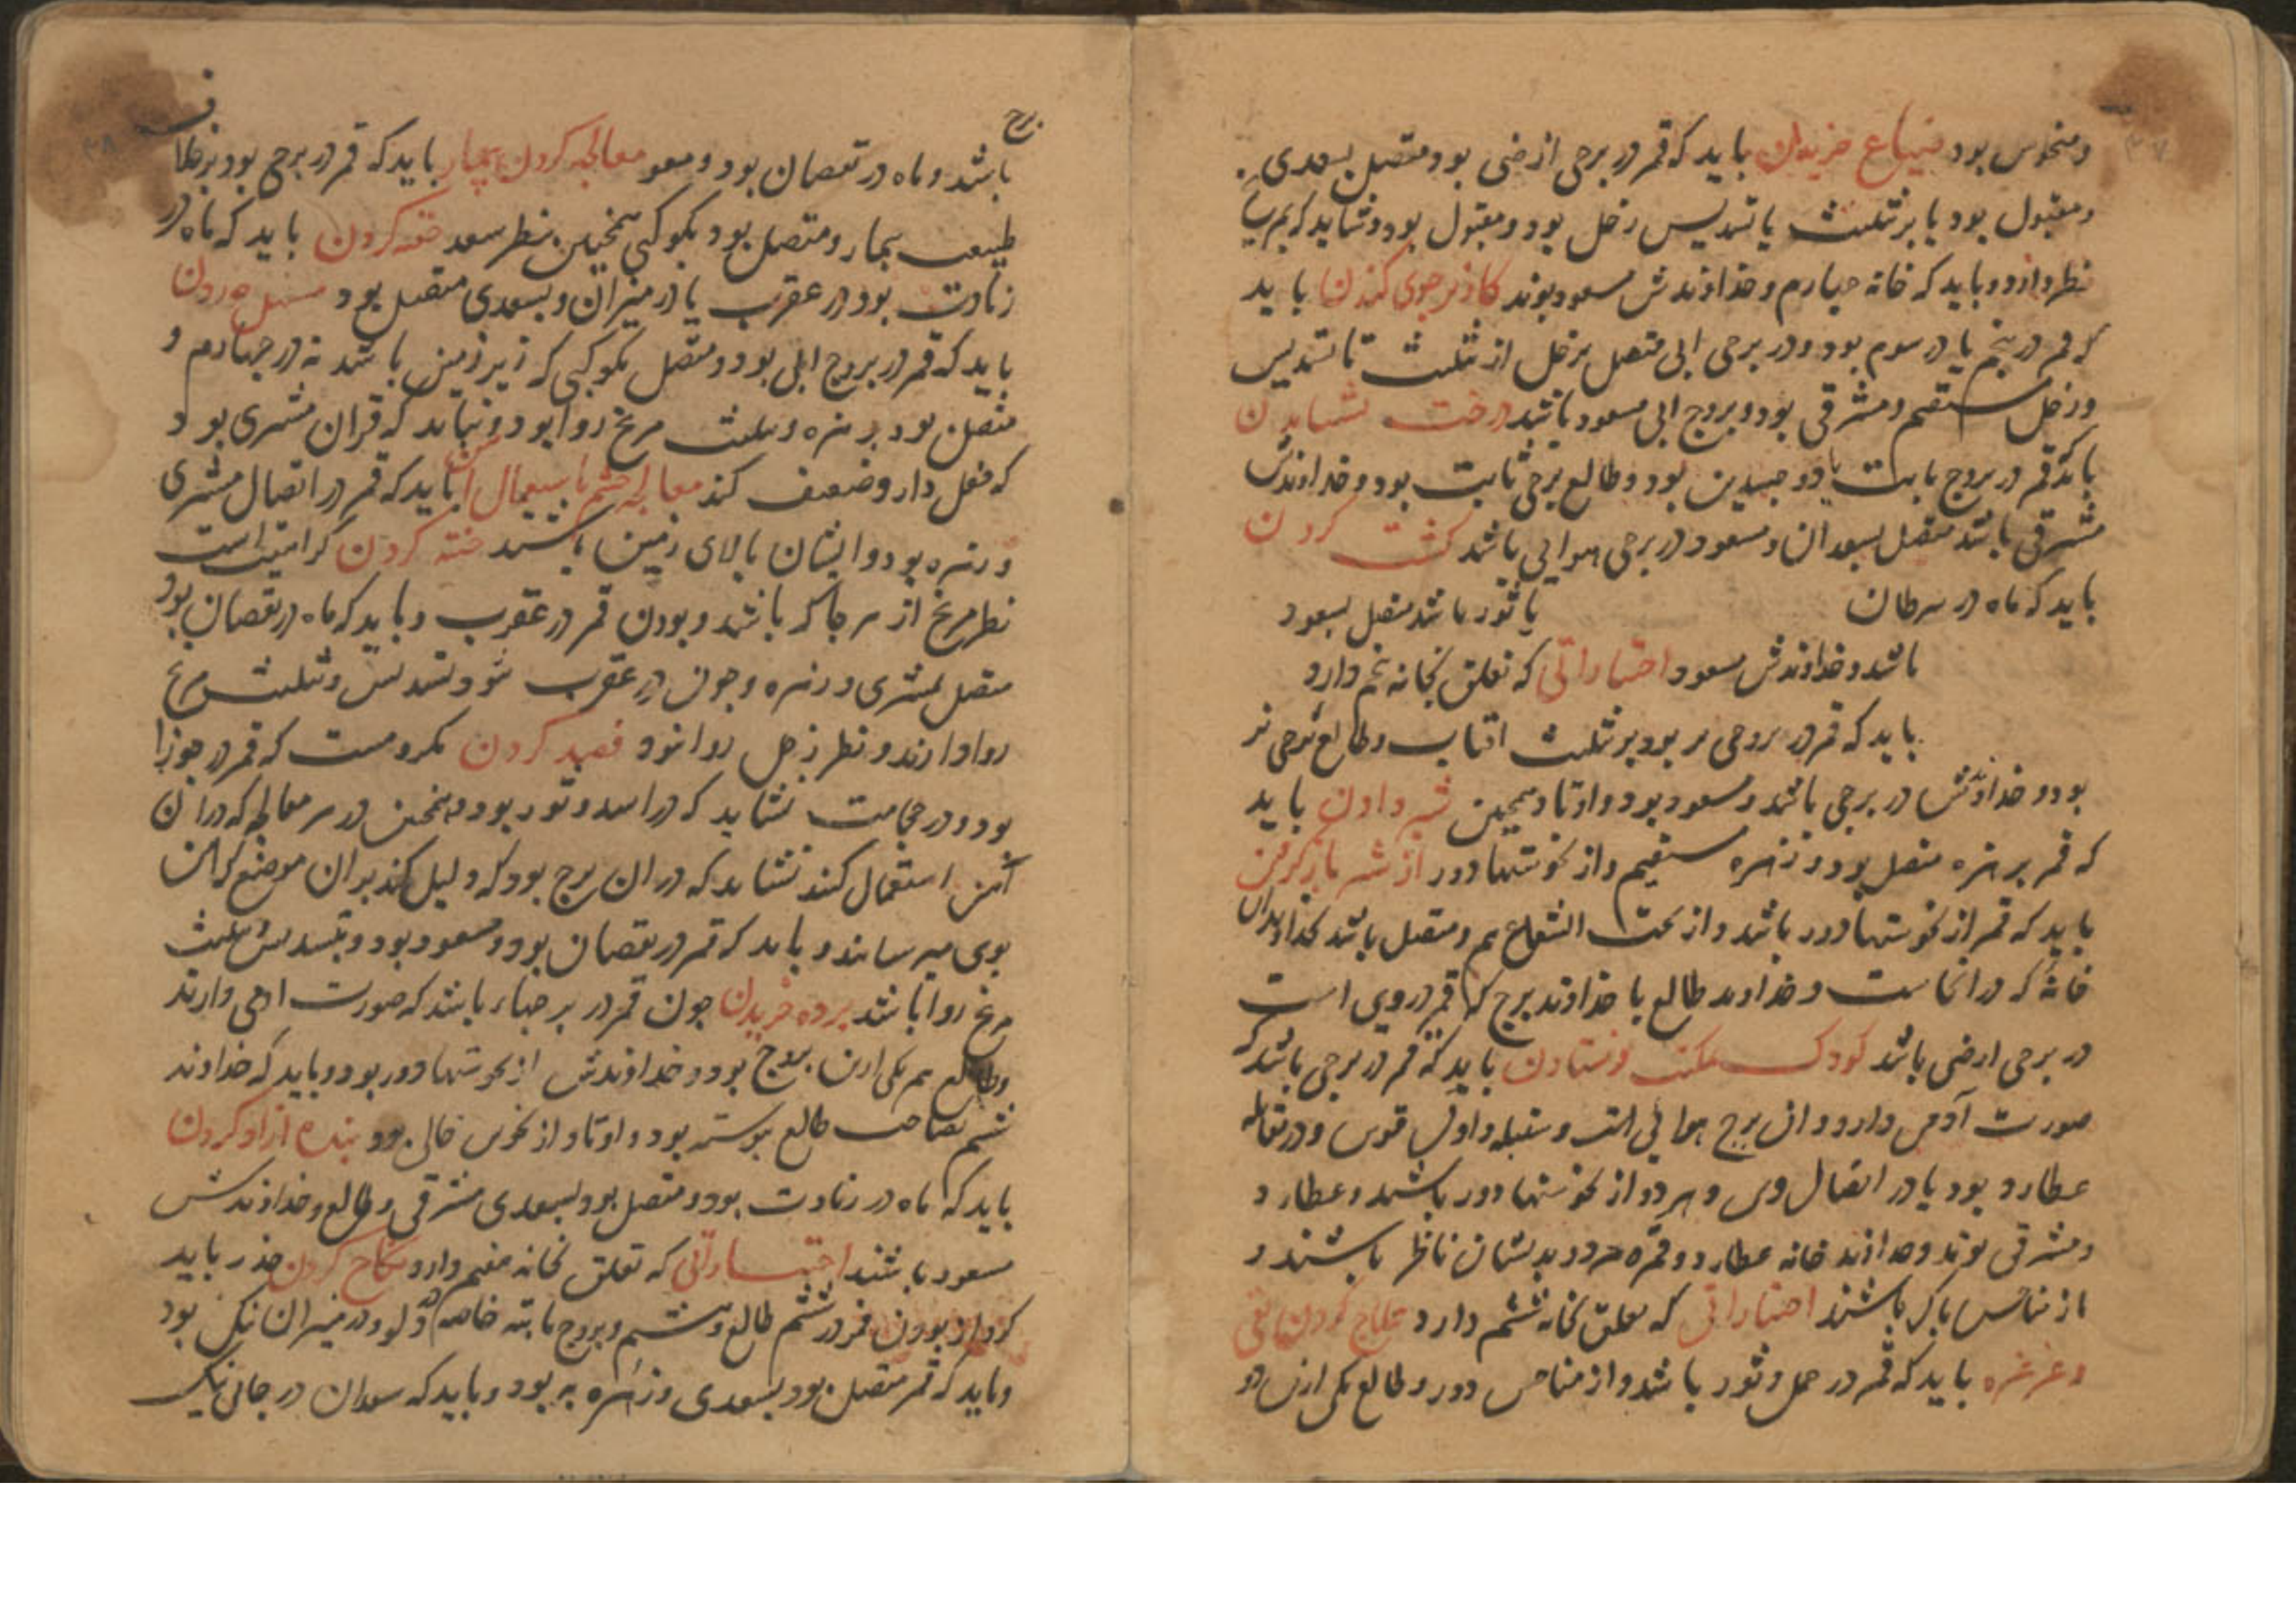 ومنحوس بود ضیاع خریدن باید که قمر در برجی ارضی بود و متصل بسعدی
و مقبول بود یا بر تثلیث یا تسدیس زحل بود و مقبول بود و نشاید که مریخ
نظر دارد و باید که خانه چهارم و خداوندش مسعود بوند کاریز و جوی کندن باید
که قمر در پنجم یا در سوم بود و در برجی ابی متصل بزحل از تثلیث تا تسدیس
و زحل مستقیم و مشرقی بود و بروج ابی مسعود باشد درخت نشاندن
باید که قمر در بروج ثابت یا دو جسدین بود و طالع برجی ثابت بود و خداوندش
مشرقی باشد متصل بسعدان و مسعود در برجی هوایی باشد کشت کردن
باید که ماه در سرطان یا ثور باشد متصل بسعود
باشد و خداوندش مسعود اختیاراتی که تعلق بخانه پنجم دارد
باید که قمر در بروجی نر بود بر تثلیث افتاب و طالع برجی نر
بود و خداوندش در برجی باشد و مسعود بود و اوتاد همچنین شیر دادن باید
که قمر بزهره متصل بود و زهره مستقیم و از نحوستها دور از شیر باز گرفتن
باید که قمر از نحوستها دور باشد و از تحت الشعاع هم و متصل باشد بخداوند ان
خانه که در انجاست و خداوند طالع با خداوند برج که قمر در وی است
در برجی ارضی باشد کودک بمکتب فرستادن باید که قمر در برجی باشد که
صورت آدمی دارد و ان برج هوایی است و سنبله و اول قوس و در مقابله
عطارد بود یا در اتصال وی و هر دو از نحوستها دور باشند و عطارد
و مشرقی بوند و خداوند خانه عطارد و قمر هر دو بدیشان ناظر باشند و
از مناحس پاک باشند اختیاراتی که تعلق بخانه ششم دارد علاج کردن بقی
و غرغره باید که قمر در حمل و ثور باشد و از مناحس دور و طالع یکی ازین دو
برج
باشد و ماه در نقصان بود و مسعود معالجه کردن بیمار باید که قمر در برجی بود بر خلاف
طبیعت بیمار و متصل بود بکوکبی همچنین بنظر سعد حقنه کردن باید که ماه در
زیادت بود در عقرب یا در میزان و بسعدی متصل بود مسهل خوردن
باید که قمر در بروج ابی بود و متصل بکوکبی که زیر زمین باشد نه در چهارم و
متصل بود بزهره و تثلیث مریخ روا بود و نباید که قران مشتری بود
که فعل دارو ضعیف کند معالجه چشم باستعمال آهن باید که قمر در اتصال مشتری
و زهره بود و ایشان بالای زمین باشند ختنه کردن کراهیت است
نظر مریخ از هر جا که باشد و بودن قمر در عقرب و باید که ماه در نقصان بود
متصل بمشتری و زهره و چون در عقرب شود تسدیس و تثلیث مریخ
روا دارند و نظر زحل روا نبود فصد کردن مکروهست که قمر در جوزا
بود و در حجامت نشاید که در اسد و ثور بود و همچنین در هر معالجه که در ان
آهن استعمال کنند نشاید که در ان برج بود که دلیل کند بر ان موضع که اهن
بوی میرسانند و باید که قمر در نقصان بود و مسعود بود و تسدیس و تثلیث
مریخ روا باشد برده خریدن چون قمر در برجهاء باشد که صورت ادمی دارند
و طالع هم یکی ازین بروج بود و خداوندش از نحوستها دور بود و باید که خداوند
ششم بصاحب طالع پیوسته بود و اوتاد از نحوس خالی بود بنده ازاد کردن
باید که ماه در زیادت بود و متصل بود بسعدی مشرقی و طالع و خداوندش
مسعود باشند اختیاراتی که تعلق بخانه هفتم دارد نکاح کردن حذر باید
کرد از بودن قمر در ششم طالع و هشتم و بروج ثابته خاصه دلو و در میزان نیک بود
و باید که قمر متصل بود بسعدی و زهره به بود و باید که سعدان در جای نیک